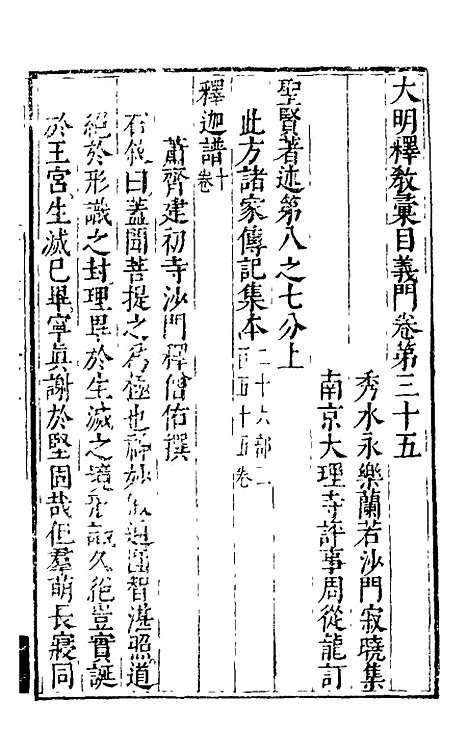 大明釋教彙目義門卷第三十五
秀水永樂蘭若沙門寂曉集
南京大理寺評事周從龍訂
聖賢著述第八之七分上
此方諸家傳記集本二十六部二百五十五卷
釋迦譜十卷
蕭齊建初寺沙門釋僧佑撰
右敘曰蓋聞菩提之為極也神妙寂通圓智湛照道
絕於形識之封理畢於生滅之境形識久絕豈實誕
於王宮生滅已畢寧真謝於堅固哉但羣萌長寢同